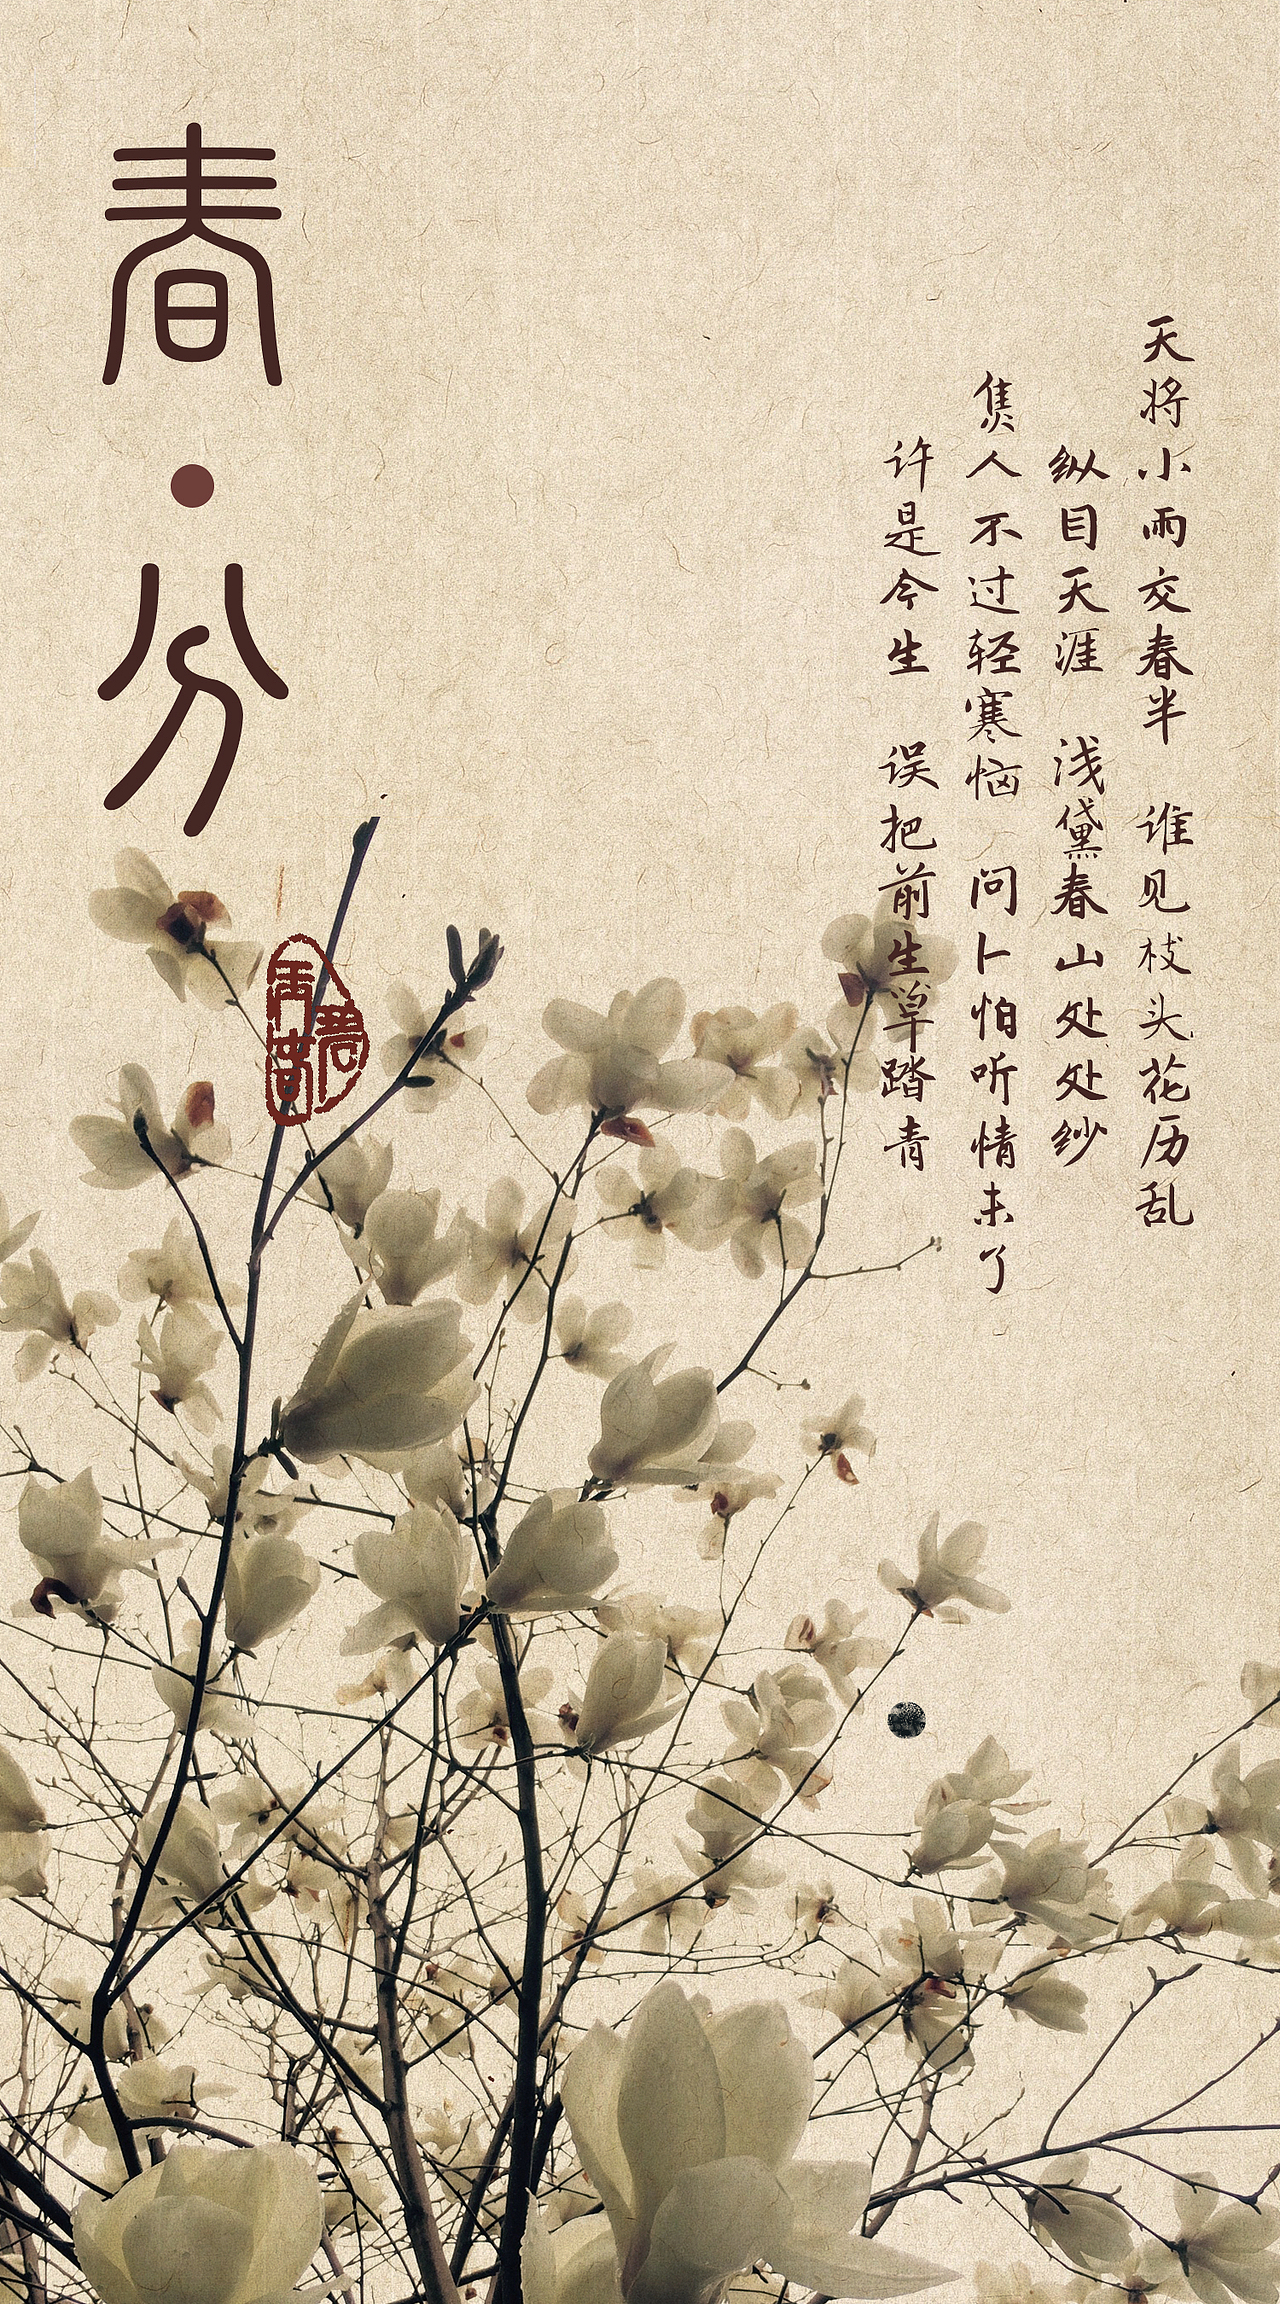 春·分
天将小雨交春半 谁见枝头花历乱
纵目天涯 浅黛春山处处纱
焦人不过轻寒恼 问卜怕听情未了
许是今生 误把前生草踏青